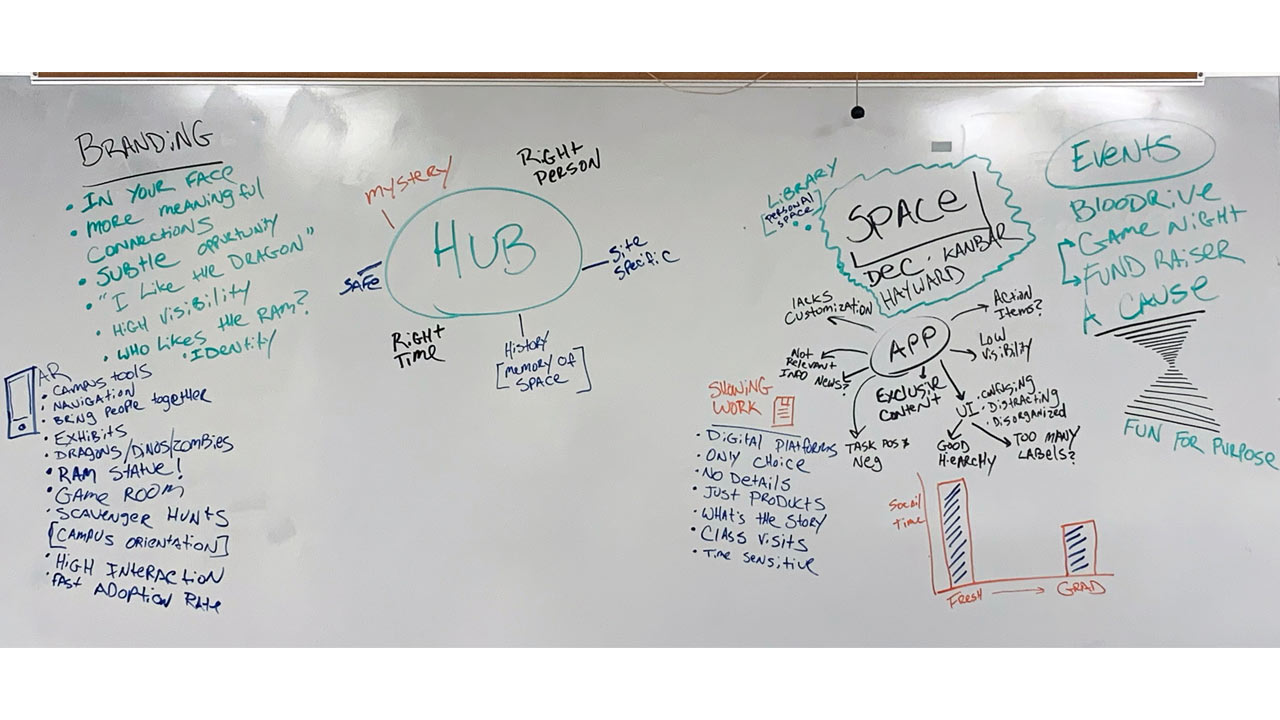 BRANDiNG
• IN YOUR FACE
• MORE MEANiNGfUL
CONNECTIONS
• SUBTLE OPPORTUNiTY
• "I LiKE tHE DRAGON"
• HiGH ViSiBiLitY
• WHO LiKES tHE RAM?
• IDENtitY
AR
• CAMPUS tOOLS
• NAViGAtiON
• BRiNG PEOPLE togetHER
• EXHiBitS
• DRAGONS/DiNOS/ZOMBiES
• RAM StAtUE!
• GAME ROOM
• SCAVENGER HUNtS
[CAMPUS ORiENtAtiON]
• HiGH INtERACtiON
• fAst ADOPtiON RAtE
mYstERY
RiGHt
PERSON
HUB
SAfE
Site
Specific
RiGHt
TiME
HistoRY
[mEmoRY of
SPACE]
LiBRARY
[PERSONAL
SPACE]
SPACE
DEC. KANBAR
HAYWARD
EVENtS
BLOODRiVE
GAME NiGHt
FUND RAiSER
A CAUSE
FUN FOR PURPOSE
APP
lACKS
CUStOmiZAtiON
ACtiON
ItEmS?
Not
RELEVANt
INfO
NEWS?
LOW
ViSiBiltY
EXCLUSiVE
CONtENt
UI
• CONfUSiNG
• DiStRACtiNG
• DiSORGANiZED
TASK POS *
NEG
GOOD
HiEARCHY
TOO MANY
LABELS?
SHOWiNG
WORK
• DiGitAL PLAtfORMS
• ONLY CHOiCE
• NO DEtAiLS
• JUSt PRODUCtS
• WHAt'S tHE StORY
• CLASS ViSitS
• TimE SENSitiVE
Social
time
FRESH
GRAD